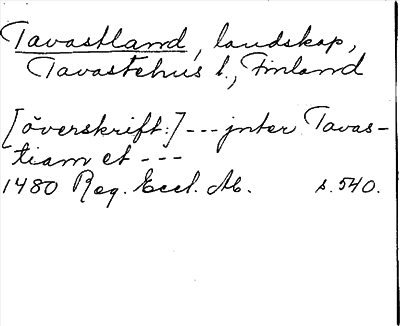 Tavastland, landskap,
Tavastehus l., Finland
[överskrift:] --- jnter Tavas-
tiam et ---
1480 Reg. Eccl. Ab. s. 540.